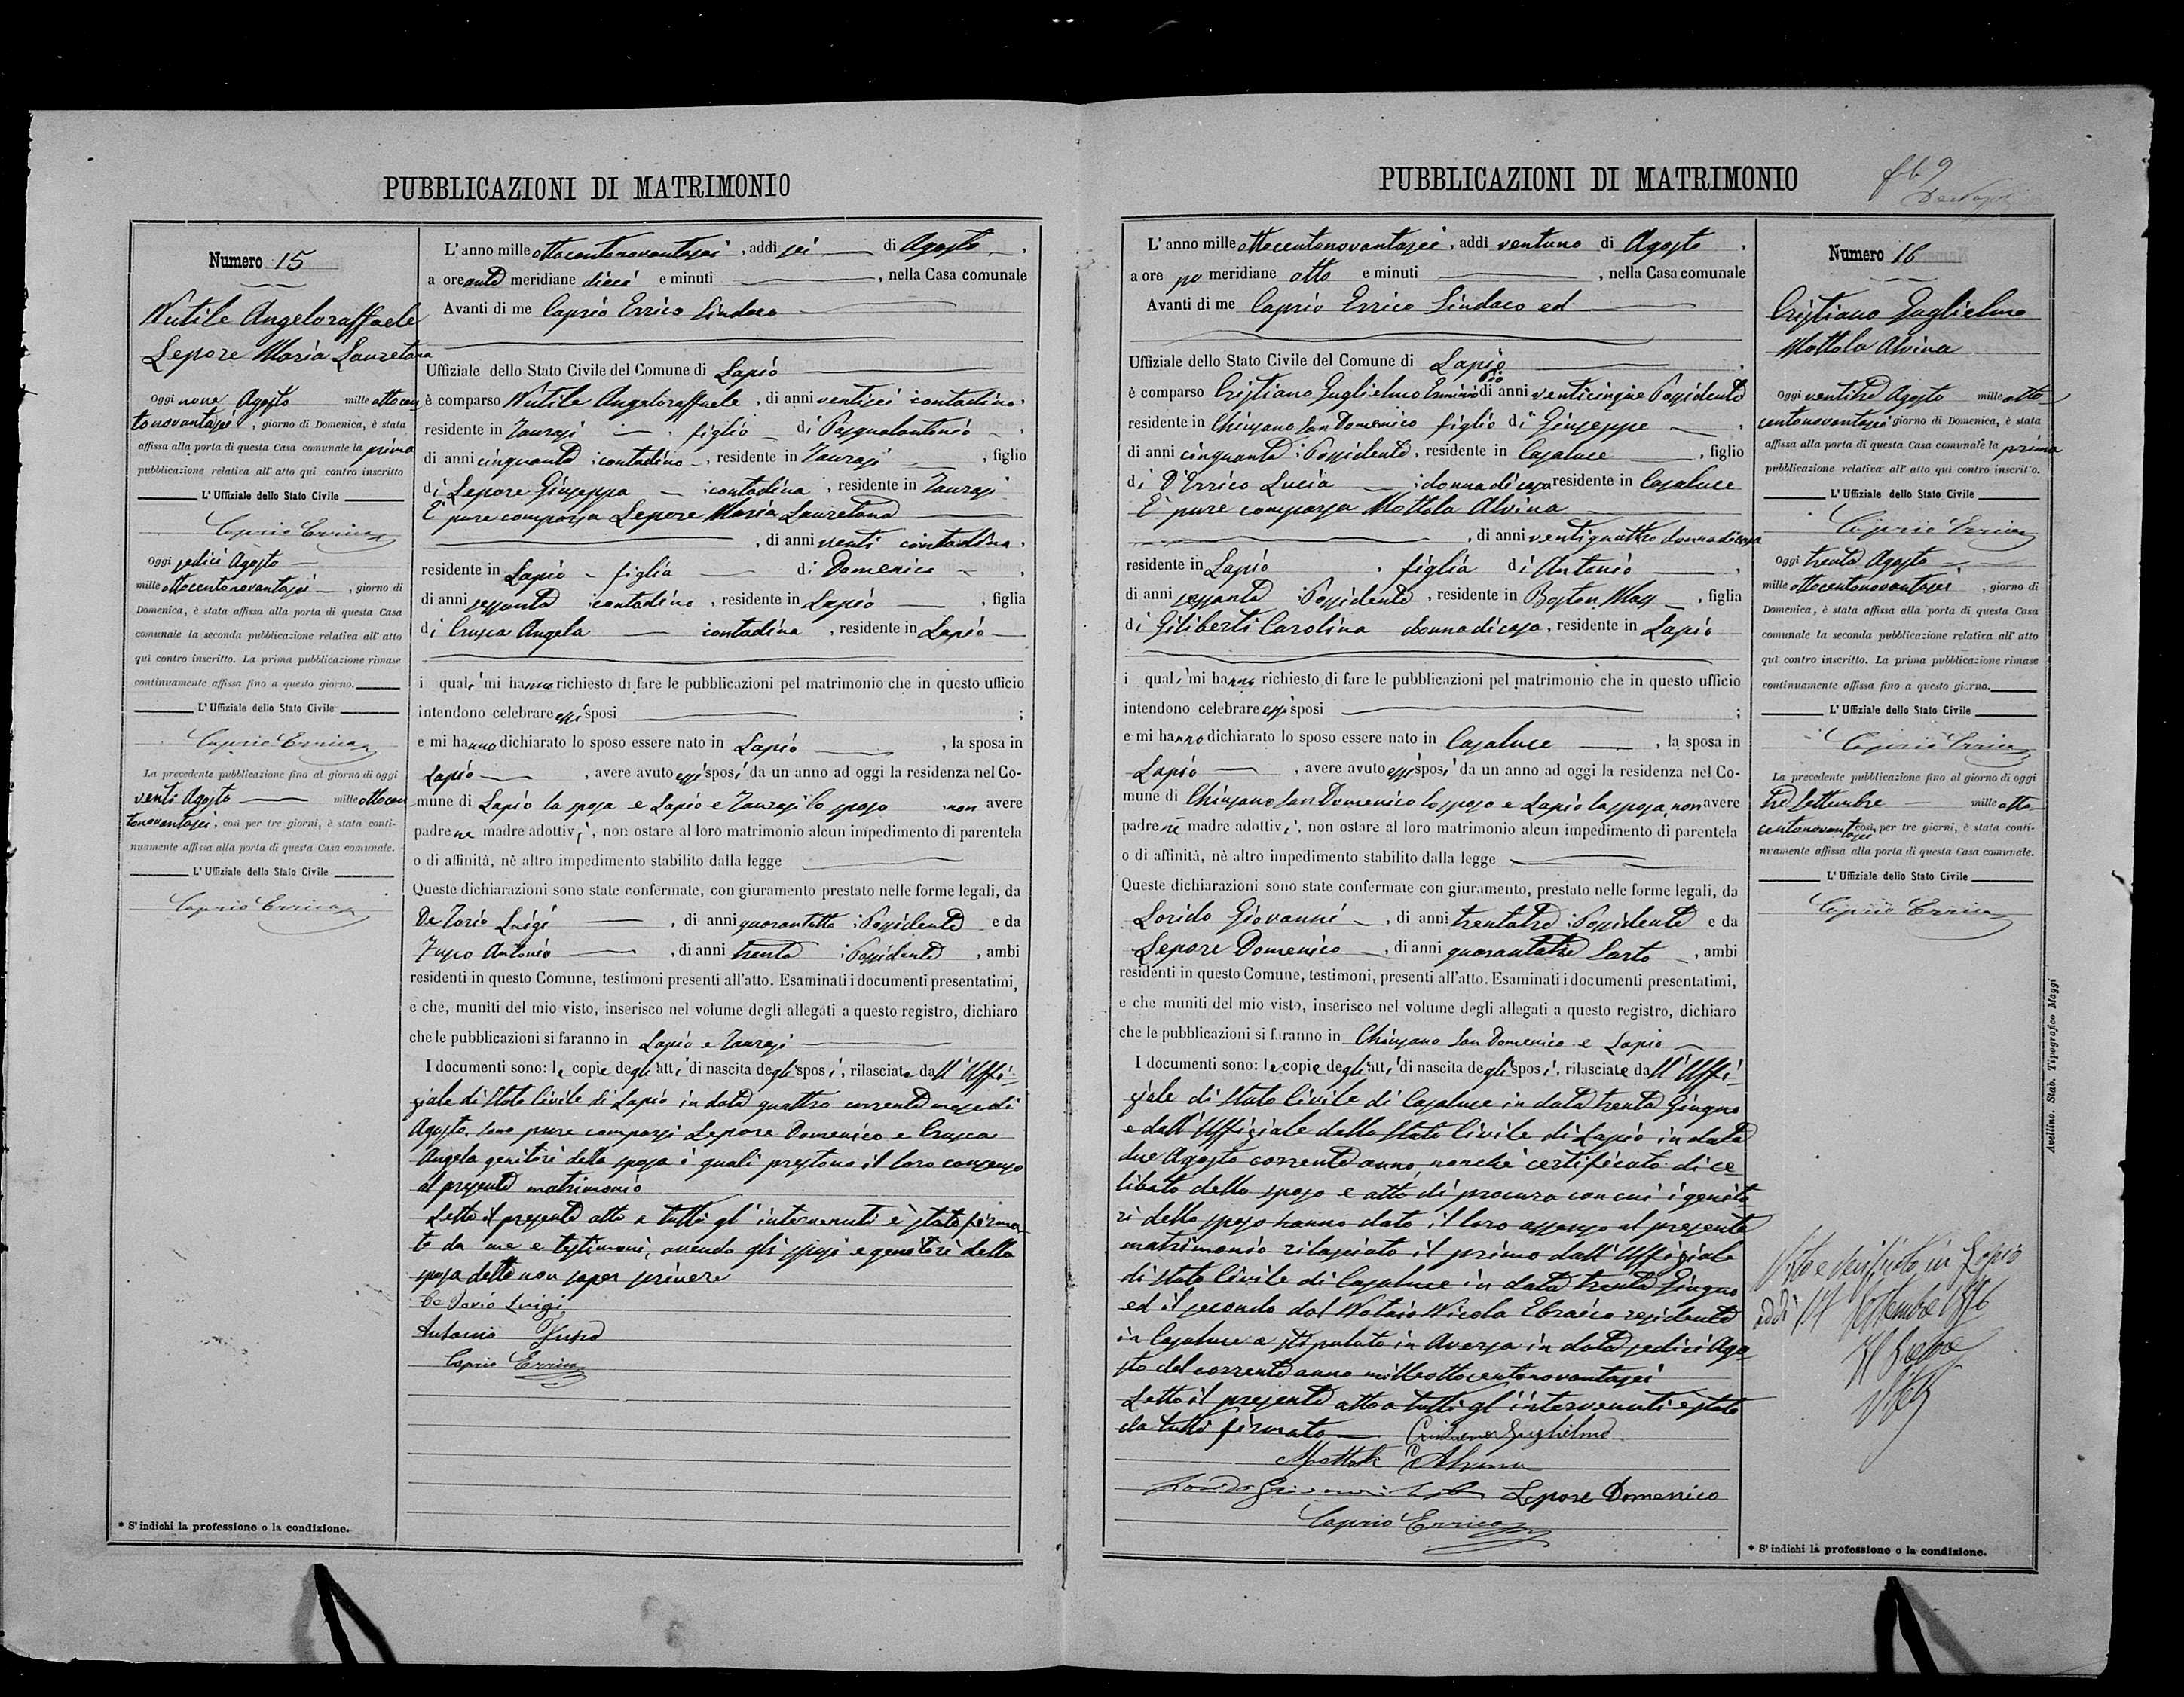 PUBBLICAZIONI DI MATRIMONIO
Numero 15
Nutile Angeloraffaele
Lepore Maria Lauretana
Oggi nove Agosto mille ottocen
tonovantasei, giorno di Domenica, è stata
affissa alla porta di questa Casa comunale la prima
pubblicazione relativa all'atto qui contro inscritto
L'Uffiziale dello Stato Civile
Caprio Errico
Oggi sedici Agosto
mille ottocentonovantasei, giorno di
Domenica, è stata affissa alla porta di questa Casa
comunale la seconda pubblicazione relativa all'atto
qui contro inscritto. La prima pubblicazione rimase
continuamente affissa fino a questo giorno.
L'Uffiziale dello Stato Civile
Caprio Errico
La precedente pubblicazione fino al giorno di oggi
venti Agosto mille ottocen
tonovantasei, così per tre giorni, è stata conti-
nuamente affissa alla porta di questa Casa comunale.
L'Uffiziale dello Stato Civile
Caprio Errico
* S'indichi la professione o la condizione.
L'anno mille ottocentonovantasei, addì sei di Agosto,
a ore ante meridiane dieci e minuti , nella Casa comunale
Avanti di me Caprio Errico Sindaco
Uffiziale dello Stato Civile del Comune di Lapio
è comparso Nutile Angeloraffaele, di anni ventisei contadino
residente in Taurasi figlio di Pasqualantonio,
di anni cinquanta contadino, residente in Taurasi, figlio
di Lepore Giuseppa contadina, residente in Taurasi
È pure comparsa Lepore Maria Lauretana
, di anni venti contadina,
residente in Lapio figlia di Domenico,
di anni sessanta contadino, residente in Lapio, figlia
di Crusca Angela contadina, residente in Lapio
i quali mi hanno richiesto di fare le pubblicazioni pel matrimonio che in questo ufficio
intendono celebrare essi sposi ;
e mi hanno dichiarato lo sposo essere nato in Lapio, la sposa in
Lapio, avere avuto essi sposi da un anno ad oggi la residenza nel Co-
mune di Lapio la sposa e Lapio e Taurasi lo sposo non avere
padre nè madre adottivi, non ostare al loro matrimonio alcun impedimento di parentela
o di affinità, nè altro impedimento stabilito dalla legge
Queste dichiarazioni sono state confermate, con giuramento prestato nelle forme legali, da
De Iorio Luigi, di anni quarantotto Possidente e da
Fuso Antonio, di anni trenta Possidente, ambi
residenti in questo Comune, testimoni presenti all'atto. Esaminati i documenti presentatimi,
e che, muniti del mio visto, inserisco nel volume degli allegati a questo registro, dichiaro
che le pubblicazioni si faranno in Lapio e Taurasi
I documenti sono: le copie degli atti di nascita degli sposi, rilasciate dall'Uffi-
ziale di Stato Civile di Lapio in data quattro corrente mese di
Agosto. Sono pure comparsi Lepore Domenico e Crusca
Angela genitori della sposa i quali prestano il loro consenso
al presente matrimonio
Letto il presente atto a tutti gl'intervenuti è stato firma
to da me e testimoni, avendo gli sposi e genitori della
sposa detto non saper scrivere
De Iorio Luigi
Antonio Fuso
Caprio Errico
PUBBLICAZIONI DI MATRIMONIO
L'anno mille ottocentonovantasei, addì ventuno di Agosto,
a ore po meridiane otto e minuti , nella Casa comunale
Avanti di me Caprio Errico Sindaco ed
Uffiziale dello Stato Civile del Comune di Lapio,
è comparso Cristiano Guglielmo Erminio Pio di anni venticinque Possidente
residente in Chiusano San Domenico figlio di Giuseppe,
di anni cinquanta Possidente, residente in Casaluce, figlio
di D'Errico Lucia donna di casa residente in Casaluce
È pure comparsa Mottola Alvina
, di anni ventiquattro donna di casa
residente in Lapio, figlia di Antonio,
di anni sessanta Possidente, residente in Boston Mass, figlia
di Giliberti Carolina donna di casa, residente in Lapio
i quali mi hanno richiesto di fare le pubblicazioni pel matrimonio che in questo ufficio
intendono celebrare essi sposi ;
e mi hanno dichiarato lo sposo essere nato in Casaluce, la sposa in
Lapio, avere avuto essi sposi da un anno ad oggi la residenza nel Co-
mune di Chiusano San Domenico lo sposo e Lapio la sposa, non avere
padre nè madre adottivi, non ostare al loro matrimonio alcun impedimento di parentela
o di affinità, nè altro impedimento stabilito dalla legge
Queste dichiarazioni sono state confermate con giuramento, prestato nelle forme legali, da
Lorido Giovanni, di anni trentatre Possidente e da
Lepore Domenico, di anni quarantatre Sarto, ambi
residenti in questo Comune, testimoni, presenti all'atto. Esaminati i documenti presentatimi,
e che muniti del mio visto, inserisco nel volume degli allegati a questo registro, dichiaro
che le pubblicazioni si faranno in Chiusano San Domenico e Lapio
I documenti sono: le copie degli atti di nascita degli sposi, rilasciate dall'Uffi-
ziale di Stato Civile di Casaluce in data trenta Giugno
e dall'Uffiziale dello Stato Civile di Lapio in data
due Agosto corrente anno, nonchè certificato di ce-
libato dello sposo e atto di procura con cui i genito
ri dello sposo hanno dato il loro assenso al presente
matrimonio rilasciato il primo dall'Uffiziale
di Stato Civile di Casaluce in data trenta Giugno
ed il secondo dal Notaio Nicola Ebraico residente
in Casaluce e stipulato in Aversa in data sedici Ago-
sto del corrente anno milleottocentonovantasei
Letto il presente atto a tutti gl'intervenuti è stato
da tutti firmato Cristiano Guglielmo
Mottola Alvina
Lorido Giovanni Lepore Domenico
Caprio Errico
Numero 16
Cristiano Guglielmo
Mottola Alvina
Oggi ventitre Agosto mille otto
centonovantasei giorno di Domenica, è stata
affissa alla porta di questa Casa comunale la prima
pubblicazione relativa all'atto qui contro inscritto.
L'Uffiziale dello Stato Civile
Caprio Errico
Oggi trenta Agosto
mille ottocentonovantasei, giorno di
Domenica, è stata affissa alla porta di questa Casa
comunale la seconda pubblicazione relativa all'atto
qui contro inscritto. La prima pubblicazione rimase
continuamente affissa fino a questo giorno.
L'Uffiziale dello Stato Civile
Caprio Errico
La precedente pubblicazione fino al giorno di oggi
tre Settembre mille otto
centonovantasei così, per tre giorni, è stata conti-
nuamente affissa alla porta di questa Casa comunale.
L'Uffiziale dello Stato Civile
Caprio Errico
Visto e verificato in Lapio
addì 17 Settembre 1896
* S'indichi la professione o la condizione.
Avellino. Stab. Tipografico Maggi